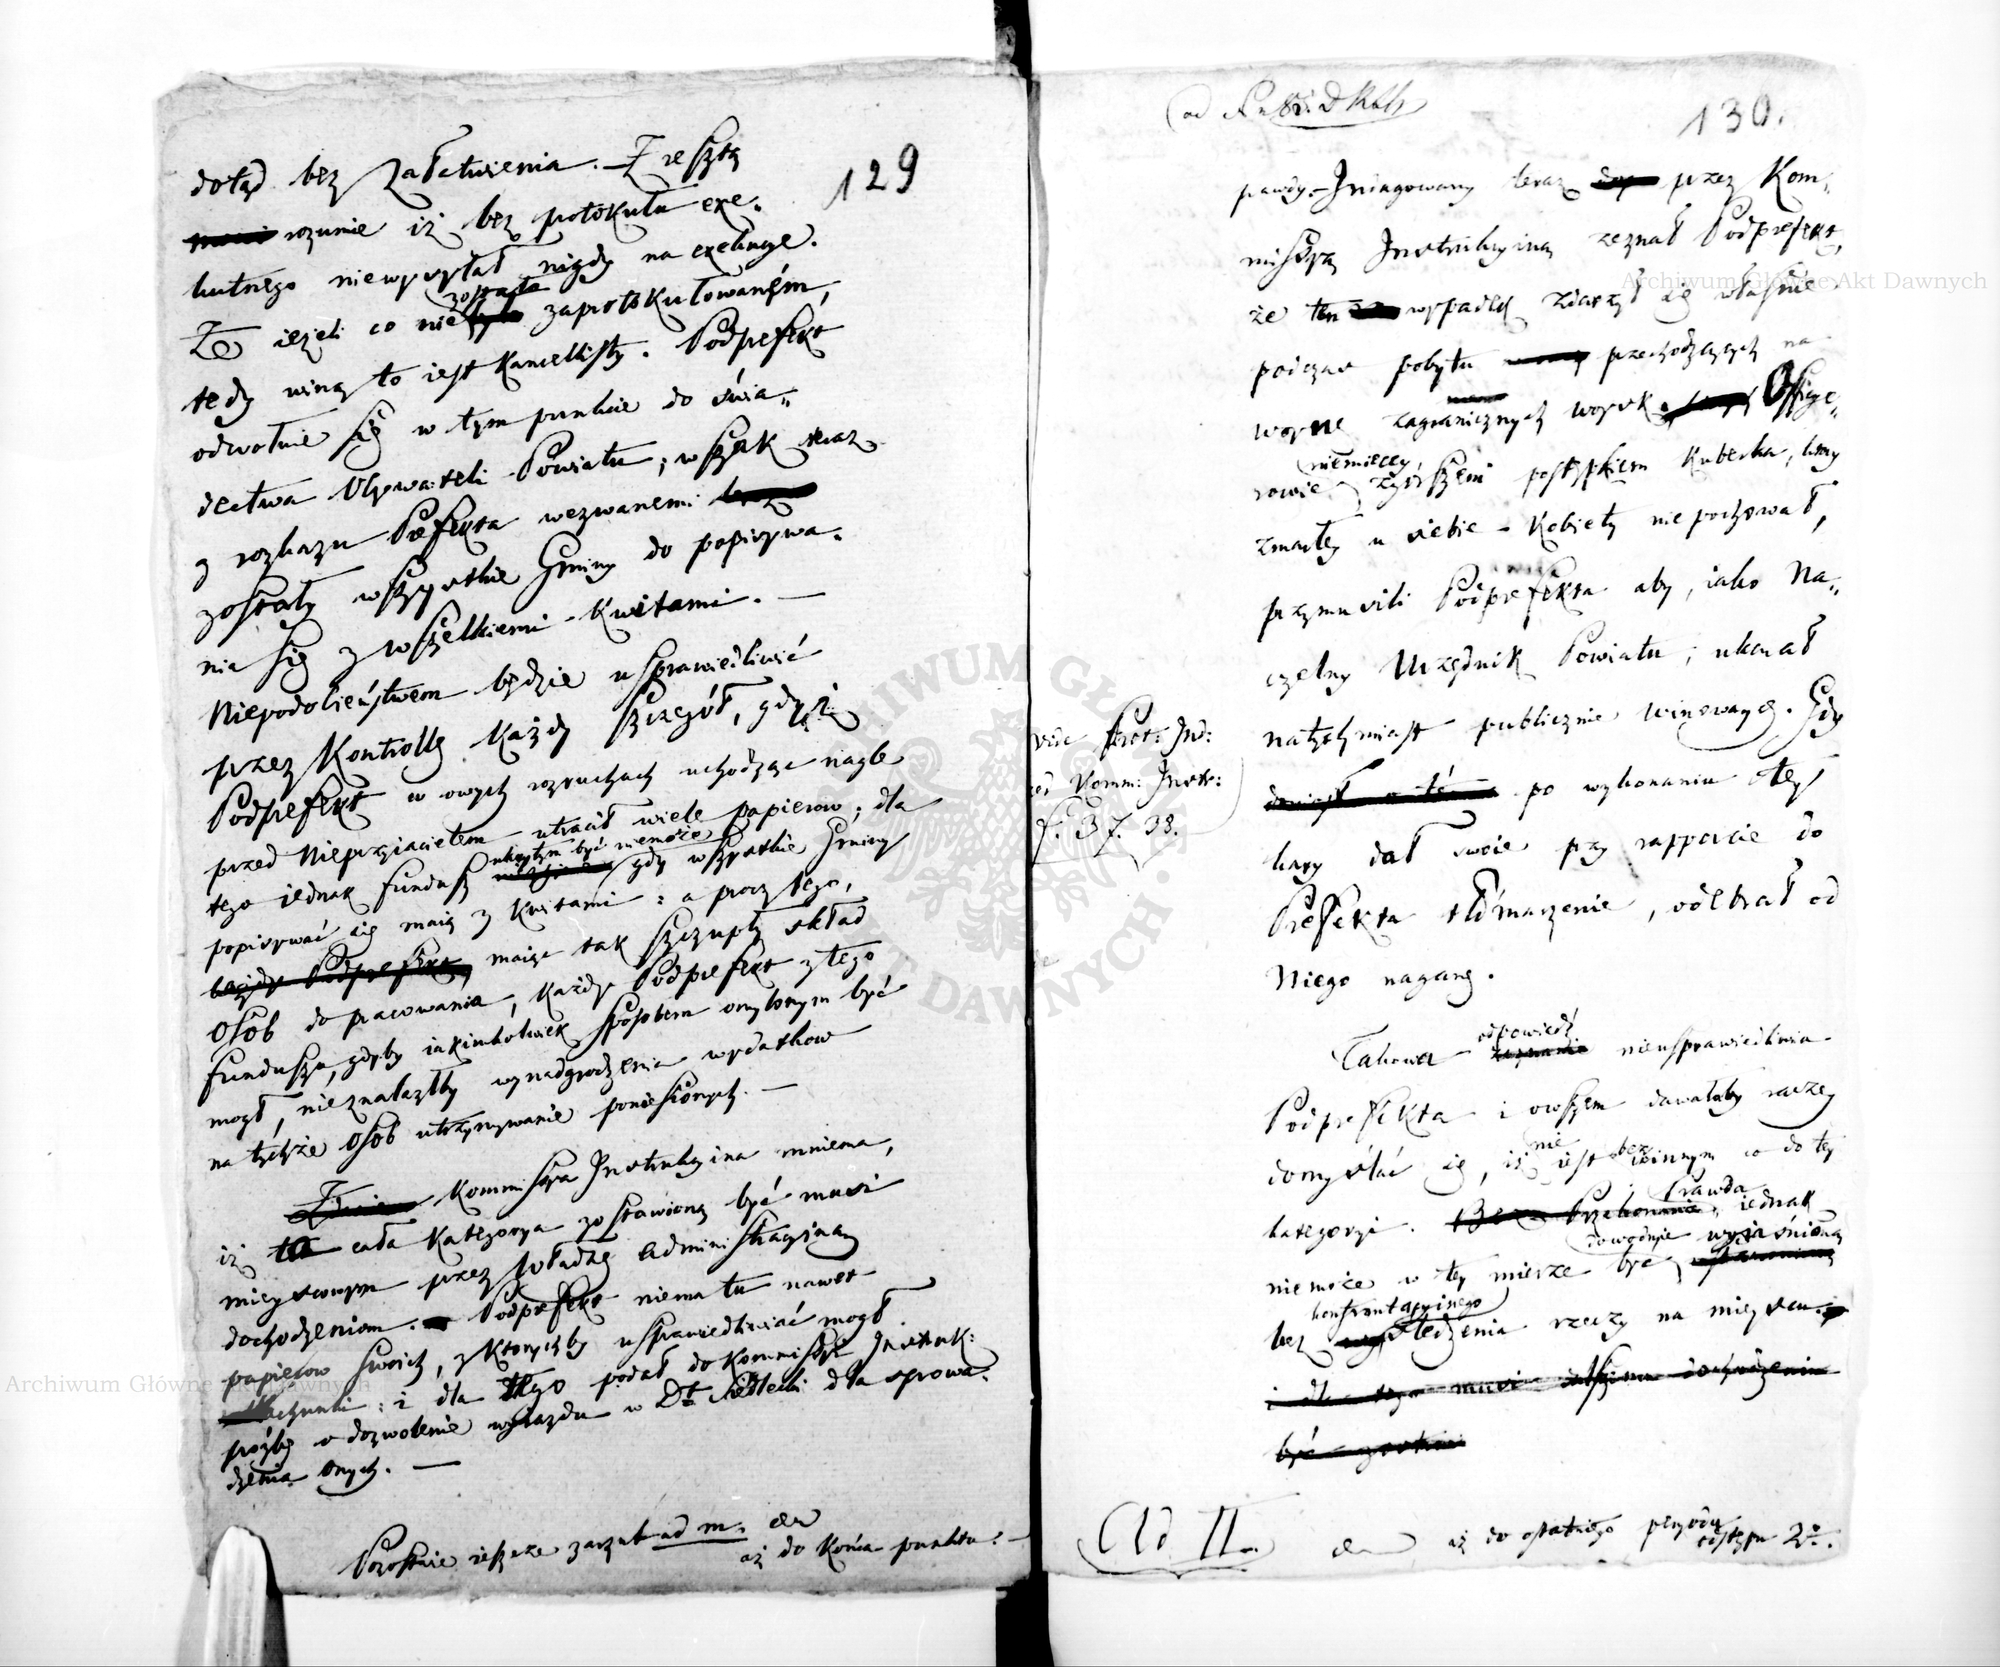 129
dotąd bez załatwienia. Zresztą
rozumie iż bez protokułu exe„
kutnego niewysyłał nigdy na exekucye.
Że ieżeli co nie zostało zaprotokułowaném,
tedy winą to iest Kancellisty. Podprefekt
odwołuie się w tym punkcie do świa„
dectwa Obywateli Powiatu; wszak teraz
z rozkazu Prefekta wezwanemi
zostały wszystkie Gminy do popisywa„
nia się z wszelkiemi Kwitami. —
Niepodobieństwem będzie usprawiedliwić
przez Kontrollę Każdy szczegół, gdyż
Podprefekt w owych rozruchach uchodząc nagle
przed Nieprzyiacielem utracił wiele papierow; dla
tego iednak fundusz ukrytym być niemoże gdy wszystkie Gminy
popisywać się maią z Kwitami: a procz tego,
każdy Podprefekt maiąc tak szczupły skład
Osób do pracowania, Każdy Podprefekt z tego
funduszu, gdyby iakimkolwiek sposobem omylonym być
mogł, nieznalazłby wynadgrodzenia wydatkow
na tychże Osób utrzymywanie poniesionych. —
Kommissya Instrukcyina mniema,
iż ta cała Kategorya zostawioną być musi
mieyscowym przez Władzę Administracyiną
dochodzeniom. Podprefekt niema tu nawet
papierow swoich, z ktorychby usprawiedliwiać mogł
rachunki; i dla tego podał do Kommissyi Instruk:
proźbę o dozwolenie wyiazdu w Dt Siedlecki dla sprowa„
dzenia onych. —
Pozostaie ieszcze zarzut ad m.
aż do Końca punktu: —
130.
Indagowany teraz przez Kom„
missyą Instrukcyiną zeznał Podprefekt,
że ten wypadek zdarzył się właśnie
podczas pobytu przechodzących na
woynę zagranicznych woysk. Officye„
rowie niemieccy, zgorszeni postępkiem Kubecka, który
zmarłey u siebie Kobiety niepochował,
przymusili Podprefekta aby, iako Na„
czelny Urzędnik Powiatu, ukarał
natychmiast publicznie winowaycę. Gdy
po wykonaniu tey
kary dał swoie przy rapporcie do
Prefekta tłómaczenie, odebrał od
Niego naganę.
vide Prot: Ind:
Komm: Instr:
f. 37. 38.
Takowa odpowiedź nieusprawiedliwia
Podprefekta i owszem dawałaby raczey
domyślać się, iż nie iest bez winnym co do tey
kategoryi. Prawda iednak
niemoże w tey mierze być dowodnie wyiaśnioną
bez konfrontacyinego śledzenia rzeczy na mieyscu.
i dla tego musi dalszemu dochodzeniu
być
Ad II.
aż do ostatniego peryodu
odstępu 2o.